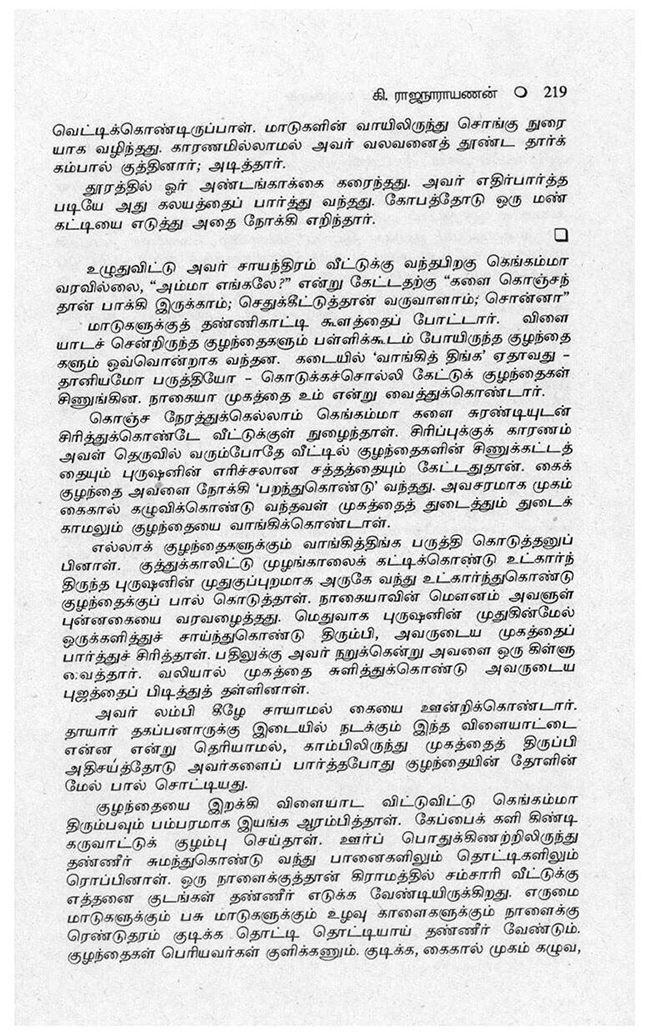 கி. ராஜநாராயணன் ❍ 219
வெட்டிக்கொண்டிருப்பாள். மாடுகளின் வாயிலிருந்து சொங்கு நுரை
யாக வழிந்தது. காரணமில்லாமல் அவர் வலவனைத் தூண்ட தார்க்
கம்பால் குத்தினார்; அடித்தார்.
தூரத்தில் ஓர் அண்டங்காக்கை கரைந்தது. அவர் எதிர்பார்த்த
படியே அது கலயத்தைப் பார்த்து வந்தது. கோபத்தோடு ஒரு மண்
கட்டியை எடுத்து அதை நோக்கி எறிந்தார்.
❑
உழுதுவிட்டு அவர் சாயந்திரம் வீட்டுக்கு வந்தபிறகு கெங்கம்மா
வரவில்லை, “அம்மா எங்கலே?” என்று கேட்டதற்கு “களை கொஞ்சந்
தான் பாக்கி இருக்காம்; செதுக்கீட்டுத்தான் வருவாளாம்; சொன்னா”
மாடுகளுக்குத் தண்ணிகாட்டி கூளத்தைப் போட்டார். விளை
யாடச் சென்றிருந்த குழந்தைகளும் பள்ளிக்கூடம் போயிருந்த குழந்தை
களும் ஒவ்வொன்றாக வந்தன. கடையில் ‘வாங்கித் திங்க’ ஏதாவது –
தானியமோ பருத்தியோ – கொடுக்கச்சொல்லி கேட்டுக் குழந்தைகள்
சிணுங்கின. நாகையா முகத்தை உம் என்று வைத்துக்கொண்டார்.
கொஞ்ச நேரத்துக்கெல்லாம் கெங்கம்மா களை சுரண்டியுடன்
சிரித்துக்கொண்டே வீட்டுக்குள் நுழைந்தாள். சிரிப்புக்குக் காரணம்
அவள் தெருவில் வரும்போதே வீட்டில் குழந்தைகளின் சிணுக்கட்டத்
தையும் புருஷனின் எரிச்சலான சத்தத்தையும் கேட்டதுதான். கைக்
குழந்தை அவளை நோக்கி ‘பறந்துகொண்டு’ வந்தது. அவசரமாக முகம்
கைகால் கழுவிக்கொண்டு வந்தவள் முகத்தைத் துடைத்தும் துடைக்
காமலும் குழந்தையை வாங்கிக்கொண்டாள்.
எல்லாக் குழந்தைகளுக்கும் வாங்கித்திங்க பருத்தி கொடுத்தனுப்
பினாள். குத்துக்காலிட்டு முழங்காலைக் கட்டிக்கொண்டு உட்கார்ந்
திருந்த புருஷனின் முதுகுப்புறமாக அருகே வந்து உட்கார்ந்துகொண்டு
குழந்தைக்குப் பால் கொடுத்தாள். நாகையாவின் மௌனம் அவளுள்
புன்னகையை வரவழைத்தது. மெதுவாக புருஷனின் முதுகின்மேல்
ஒருக்களித்துச் சாய்ந்துகொண்டு திரும்பி, அவருடைய முகத்தைப்
பார்த்துச் சிரித்தாள். பதிலுக்கு அவர் நறுக்கென்று அவளை ஒரு கிள்ளு
வைத்தார். வலியால் முகத்தை சுளித்துக்கொண்டு அவருடைய
புஜத்தைப் பிடித்துத் தள்ளினாள்.
அவர் லம்பி கீழே சாயாமல் கையை ஊன்றிக்கொண்டார்.
தாயார் தகப்பனாருக்கு இடையில் நடக்கும் இந்த விளையாட்டை
என்ன என்று தெரியாமல், காம்பிலிருந்து முகத்தைத் திருப்பி
அதிசயத்தோடு அவர்களைப் பார்த்தபோது குழந்தையின் தோளின்
மேல் பால் சொட்டியது.
குழந்தையை இறக்கி விளையாட விட்டுவிட்டு கெங்கம்மா
திரும்பவும் பம்பரமாக இயங்க ஆரம்பித்தாள். கேப்பைக் களி கிண்டி
கருவாட்டுக் குழம்பு செய்தாள். ஊர்ப் பொதுக்கிணற்றிலிருந்து
தண்ணீர் சுமந்துகொண்டு வந்து பானைகளிலும் தொட்டிகளிலும்
ரொப்பினாள். ஒரு நாளைக்குத்தான் கிராமத்தில் சம்சாரி வீட்டுக்கு
எத்தனை குடங்கள் தண்ணீர் எடுக்க வேண்டியிருக்கிறது. எருமை
மாடுகளுக்கும் பசு மாடுகளுக்கும் உழவு காளைகளுக்கும் நாளைக்கு
ரெண்டுதரம் குடிக்க தொட்டி தொட்டியாய் தண்ணீர் வேண்டும்.
குழந்தைகள் பெரியவர்கள் குளிக்கணும். குடிக்க, கைகால் முகம் கழுவ,